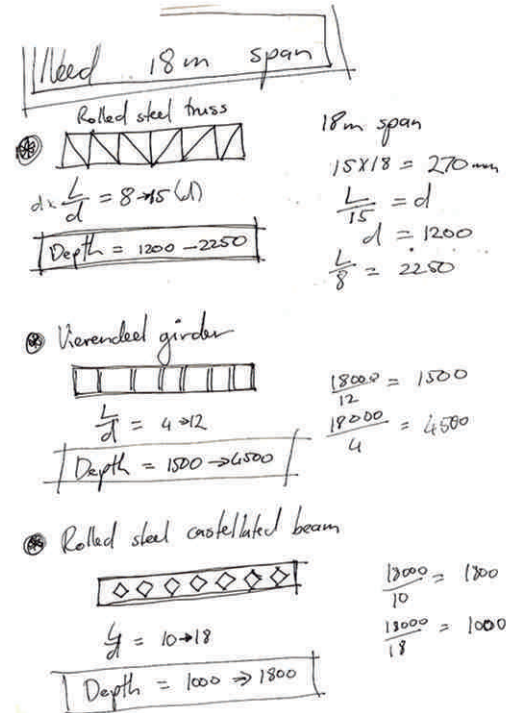 Need 18m span
Rolled steel truss
L/d = 8→15 (d)
Depth = 1200 - 2250
18m span
15x18 = 270mm
L/15 = d
d = 1200
L/8 = 2250
Vierendeel girder
L/d = 4→12
Depth = 1500 → 4500
18000/12 = 1500
18000/4 = 4500
Rolled steel castellated beam
L/d = 10→18
Depth = 1000 → 1800
18000/10 = 1800
18000/18 = 1000